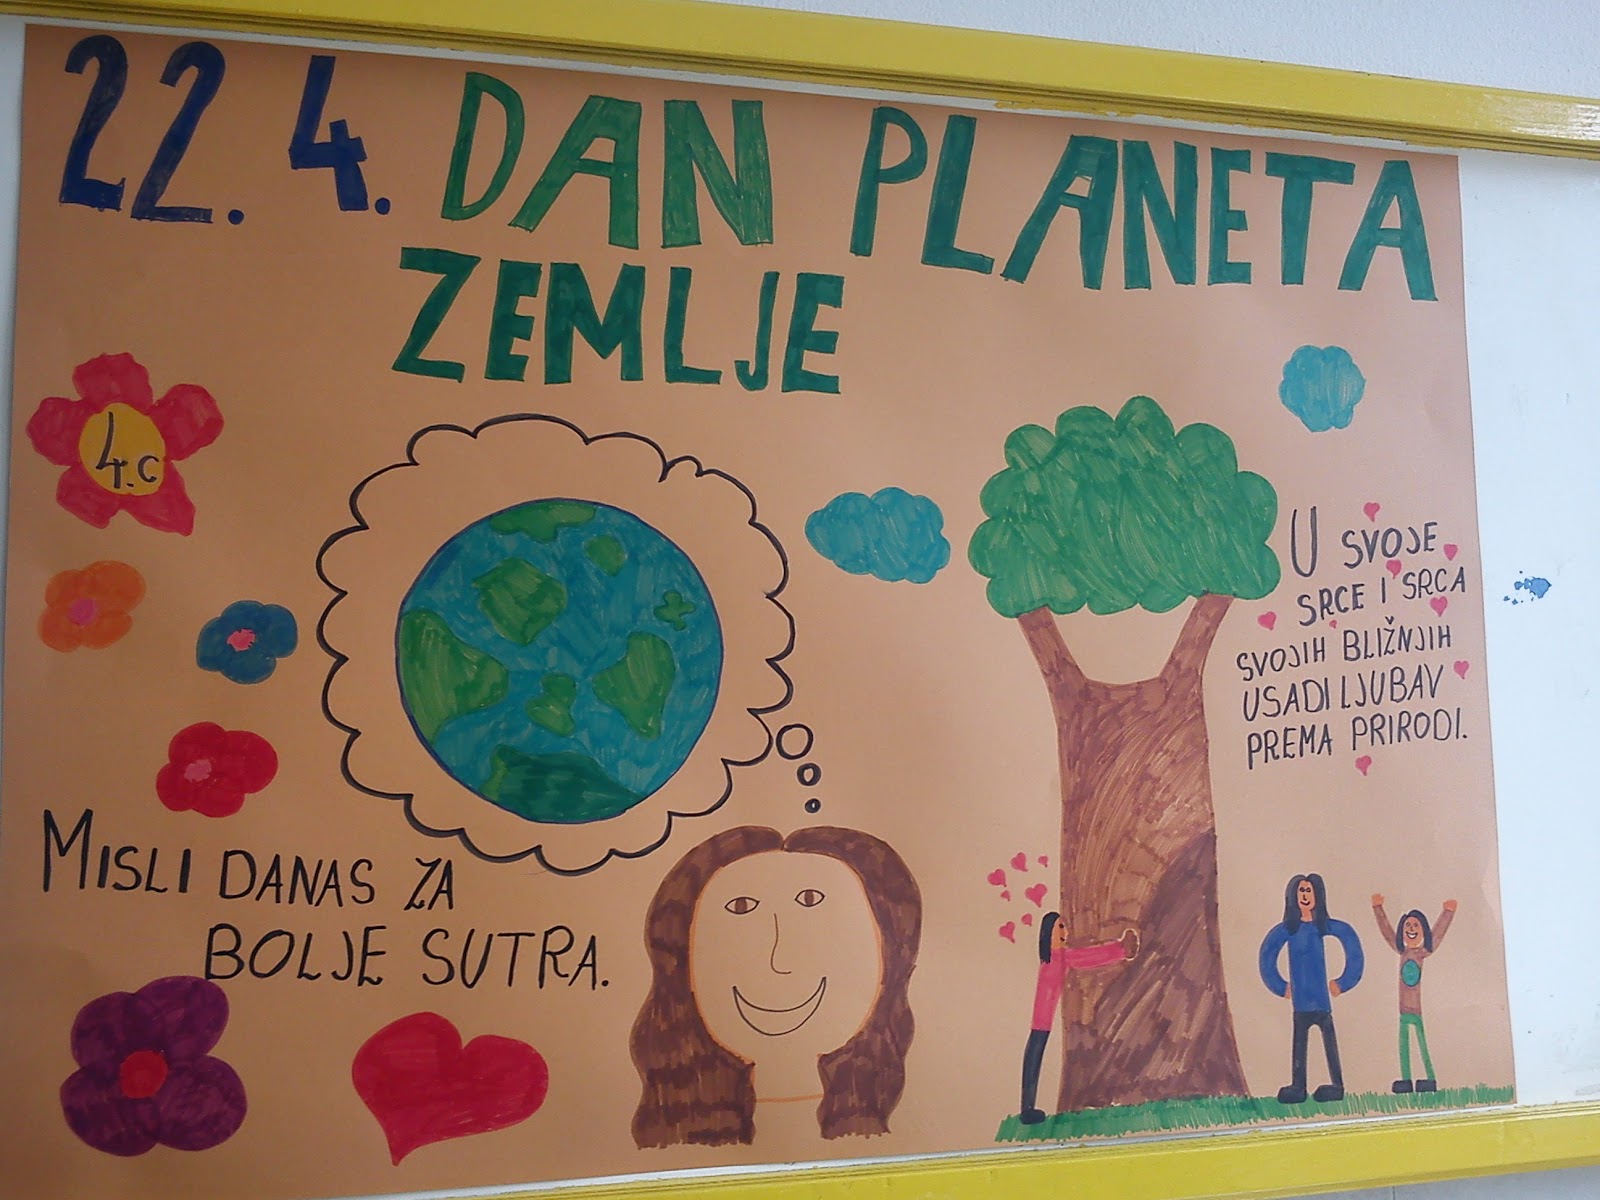 22. 4. DAN PLANETA
ZEMLJE
4.c
MISLI DANAS ZA
BOLJE SUTRA.
U SVOJE
SRCE I SRCA
SVOJIH BLIŽNJIH
USADI LJUBAV
PREMA PRIRODI.